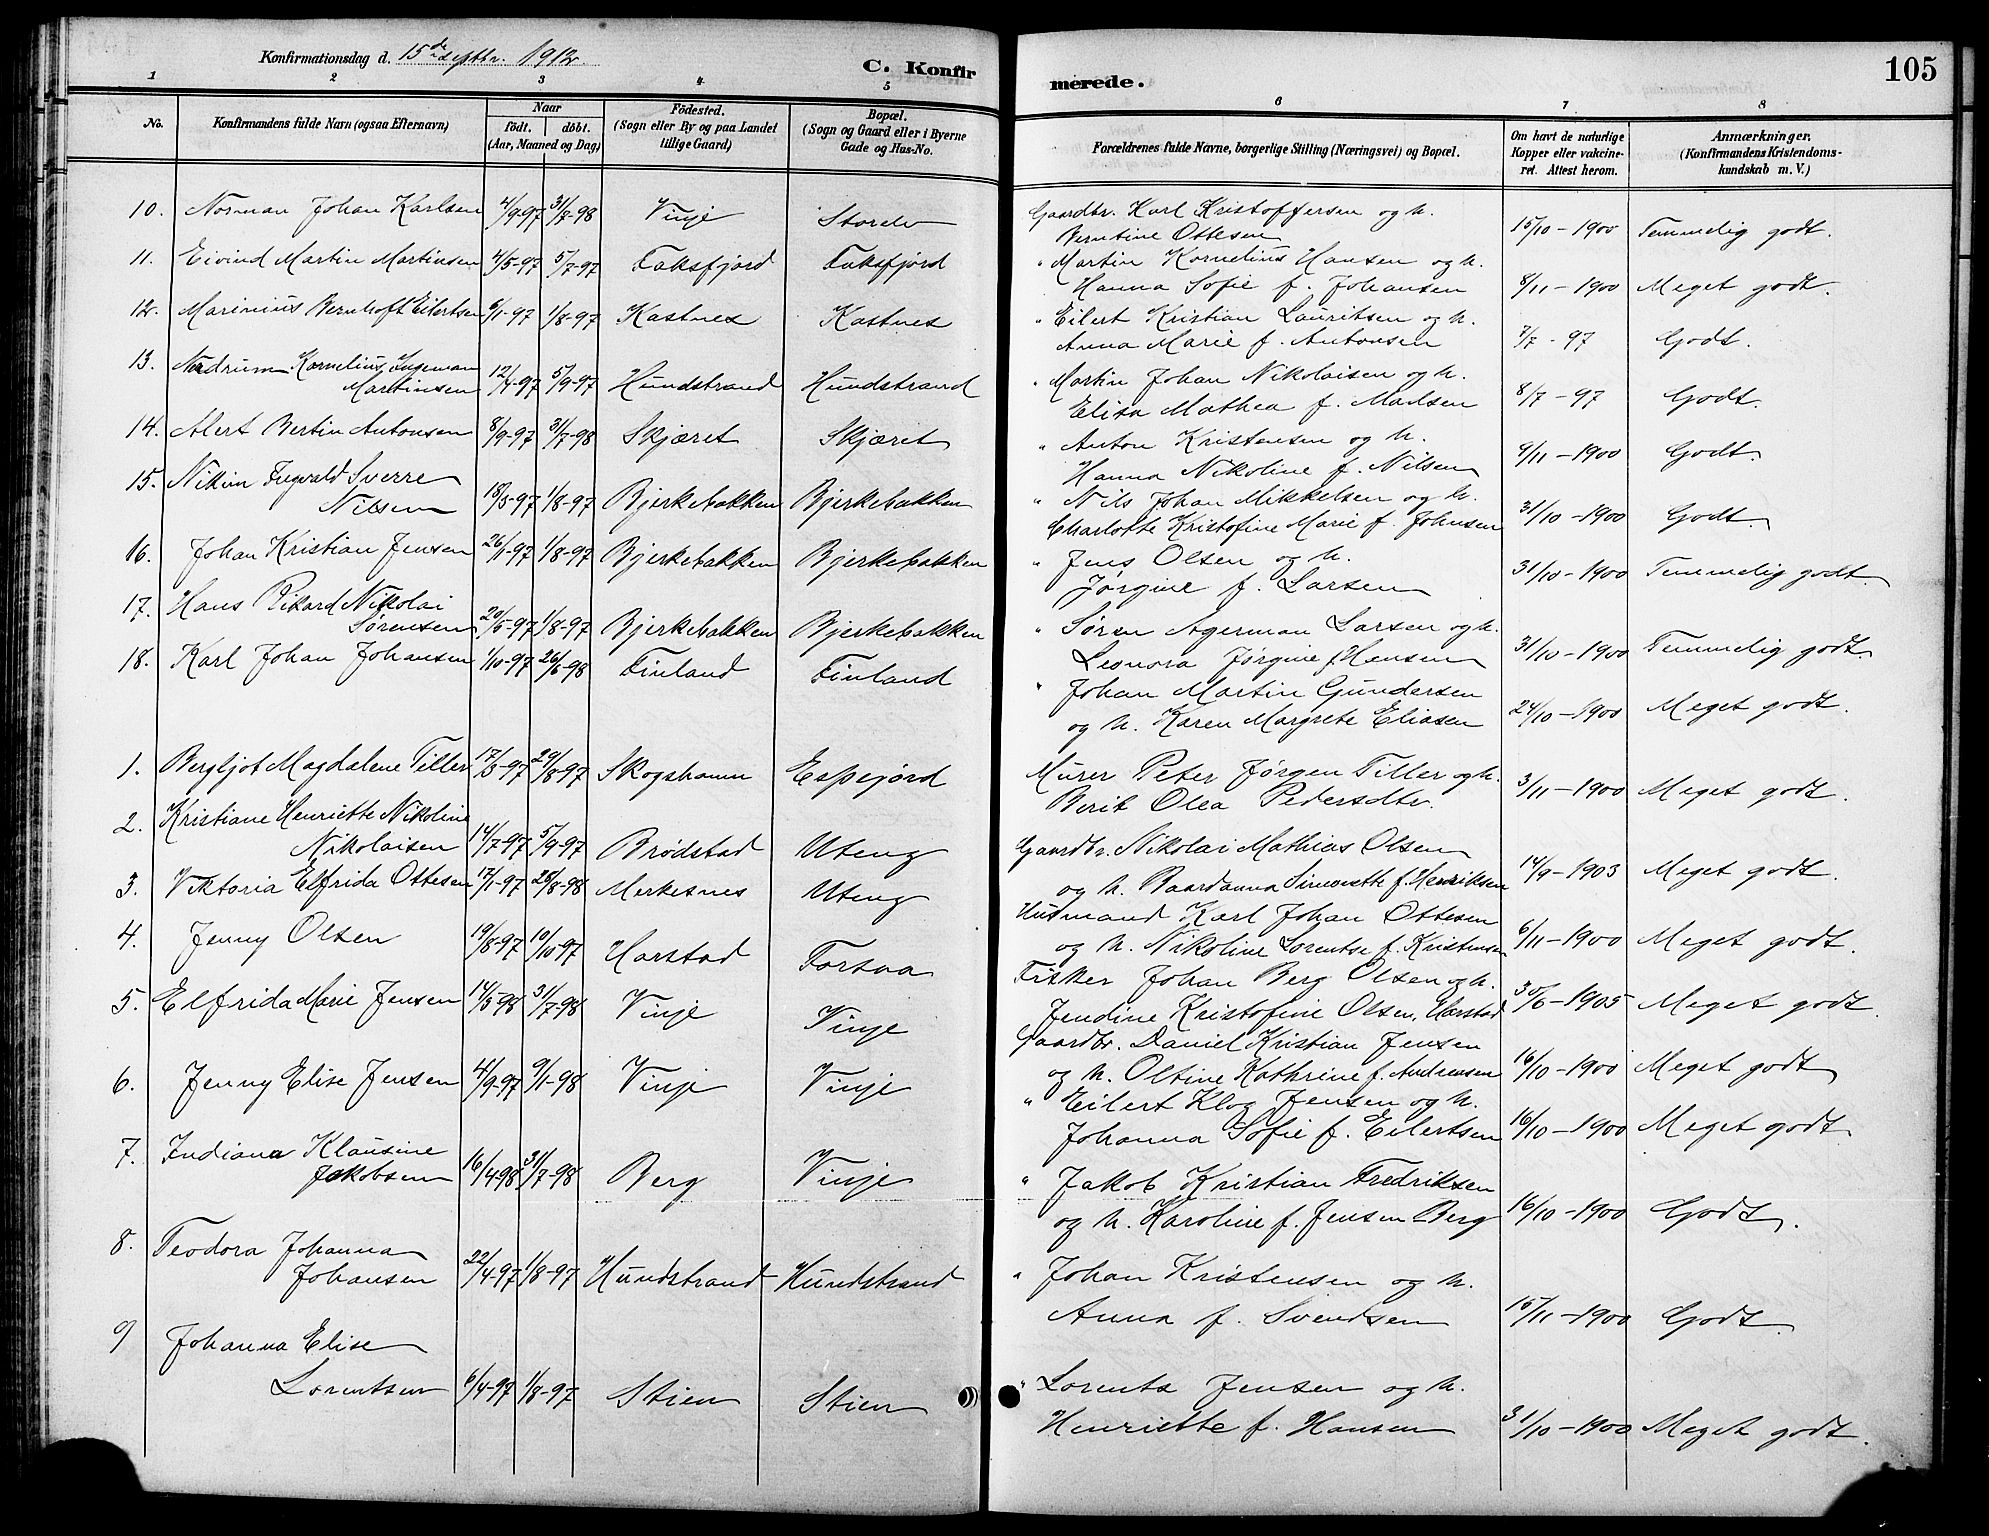 Konfirmationsdag d. 15de septbr. 1912.
C. Konfirmerede.
105
1 2 3 4 5 6 7 8
No.
Konfirmandens fulde Navn (ogsaa Efternavn)
Naar
födt. döbt.
(Aar, Maaned og Dag)
Födested.
(Sogn eller By og paa Landet tillige Gaard)
Bopæl.
(Sogn og Gaard eller i Byerne Gade og Hus-No.
Forældrenes fulde Navne, borgerlige Stilling (Næringsvei) og Bopæl.
Om havt de naturlige Kopper eller vakcineret. Attest herom.
Anmærkninger.
(Konfirmandens Kristendomskundskab m. V.)
10. Norman Johan Karlsen 4/9-97 31/7-98 Vinje Storelv Gaardbr. Karl Kristoffersen og h.
Berntine Ottesen 15/10-1900 Temmelig godt.
11. Eivind Martin Martinsen 4/5-97 5/7-97 Faksfjord Faksfjord " Martin Kornelius Hansen og h.
Hanna Sofie f. Johansen 8/11-1900 Meget godt.
12. Marinius Bernhoft Eilertsen 6/1-97 1/8-97 Kastnes Kastnes " Eilert Kristian Lauritsen og h.
Anna Marie f. Antonsen 7/7-97 Godt.
13. Nadrum Kornelius Ingeman
Martinsen 12/4-97 5/9-97 Hundstrand Hundstrand " Martin Johan Nikolaisen og h.
Elisa Mathea f. Madsen 8/7-97 Godt.
14. Alert Bertin Antonsen 8/9-97 31/7-98 Skjæret Skjæret " Anton Kristensen og h.
Hanna Nikoline f. Nilsen 9/11-1900 Godt.
15. Nikim Ingvald Sverre
Nilsen 18/5-97 1/8-97 Bjerkebakken Bjerkebakken " Nils Johan Mikkelsen og h.
Charlotte Kristofine Marie f. Johnsen 31/10-1900 Godt.
16. Johan Kristian Jensen 26/1-97 1/8-97 Bjerkebakken Bjerkebakken " Jens Olsen og h.
Jørgine f. Larsen 31/10-1900 Temmelig godt
17. Hans Rikard Nikolai
Sørensen 20/5-97 1/8-97 Bjerkebakken Bjerkebakken " Søren Agerman Larsen og h.
Leonora Jørgine f. Hansen 31/10-1900 Temmelig godt.
18. Karl Johan Johansen 1/10-97 26/6-98 Finland Finland " Johan Martin Gundersen
og h. Karen Margrete Eliasen 24/10-1900 Meget godt.
1. Bergljot Magdalene Tiller 17/3-97 29/8-97 Skogshamn Espejord Murer Peter Jørgen Tiller og h.
Berit Olea Pedersdtr. 3/11-1900 Meget godt.
2. Kristiane Henriette Nikoline
Nikolaisen 14/7-97 5/9-97 Brødstad Uteng Gaardbr. Nikolai Mathias Olsen
og h. Baardanna Simonette f. Henriksen 14/9-1903 Meget godt.
3. Viktoria Elfrida Ottesen 17/1-97 28/8-98 Merkesnes Uteng Husmand Karl Johan Ottesen
og h. Nikoline Lorentse f. Kristensen 6/11-1900 Meget godt.
4. Jenny Olsen 19/8-97 10/10-97 Harstad Forsaa Fisker Johan Berg Olsen og h.
Jendine Kristofine Olsen, Harstad 30/6-1905 Meget godt.
5. Elfrida Marie Jensen 14/5-98 31/7-98 Vinje Vinje Gaardbr. Daniel Kristian Jensen
og h. Oltine Kathrine f. Andreasen 16/10-1900 Meget godt
6. Jenny Elise Jensen 4/9-97 9/1-98 Vinje Vinje " Eilert Klog Jensen og h.
Johanna Sofie f. Eilertsen 16/10-1900 Meget godt.
7. Indiana Klausine
Jakobsen 16/4-98 31/7-98 Berg Vinje " Jakob Kristian Fredriksen
og h. Karoline f. Jensen Berg 16/10-1900 Godt.
8. Teodora Johanna
Johansen 22/4-97 1/8-97 Hundstrand Hundstrand " Johan Kristensen og h.
Anna f. Svendsen 15/11-1900 Godt.
9 Johanna Elise
Lorentsen 6/4-97 1/8-97 Stien Stien " Lorents Jensen og h.
Henriette f. Hansen 31/10-1900 Meget godt.